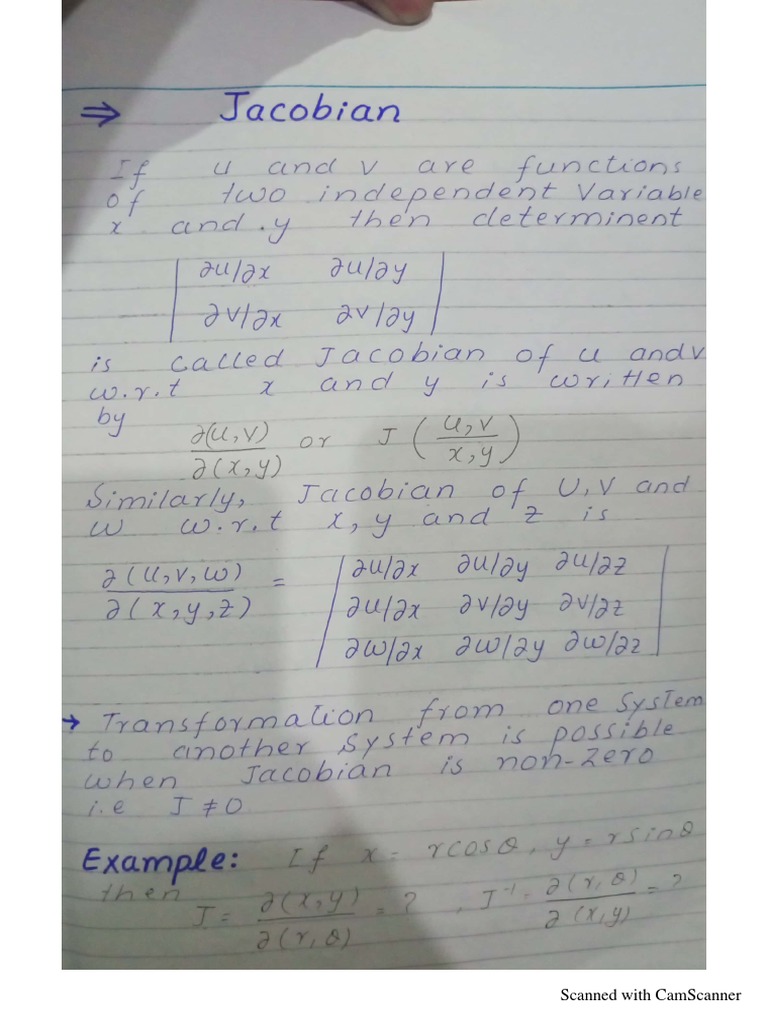 ⇒ Jacobian
If u and v are functions
of two independent Variable
x and .y then determinent
| ∂u/∂x ∂u/∂y |
| ∂v/∂x ∂v/∂y |
is called Jacobian of u and v
w.r.t x and y is written
by
∂(u,v)/∂(x,y) or J (u,v/x,y)
Similarly, Jacobian of U,V and
W w.r.t x, y and z is
∂(u,v,w)/∂(x,y,z) = | ∂u/∂x ∂u/∂y ∂u/∂z |
| ∂u/∂x ∂v/∂y ∂v/∂z |
| ∂w/∂x ∂w/∂y ∂w/∂z |
→ Transformation from one System
to another system is possible
when Jacobian is non-zero
i.e J ≠ 0
Example: If x = rcosθ, y = rsinθ
then J = ∂(x,y)/∂(r,θ) = ? , J⁻¹ - ∂(r,θ)/∂(x,y) = ?
Scanned with CamScanner